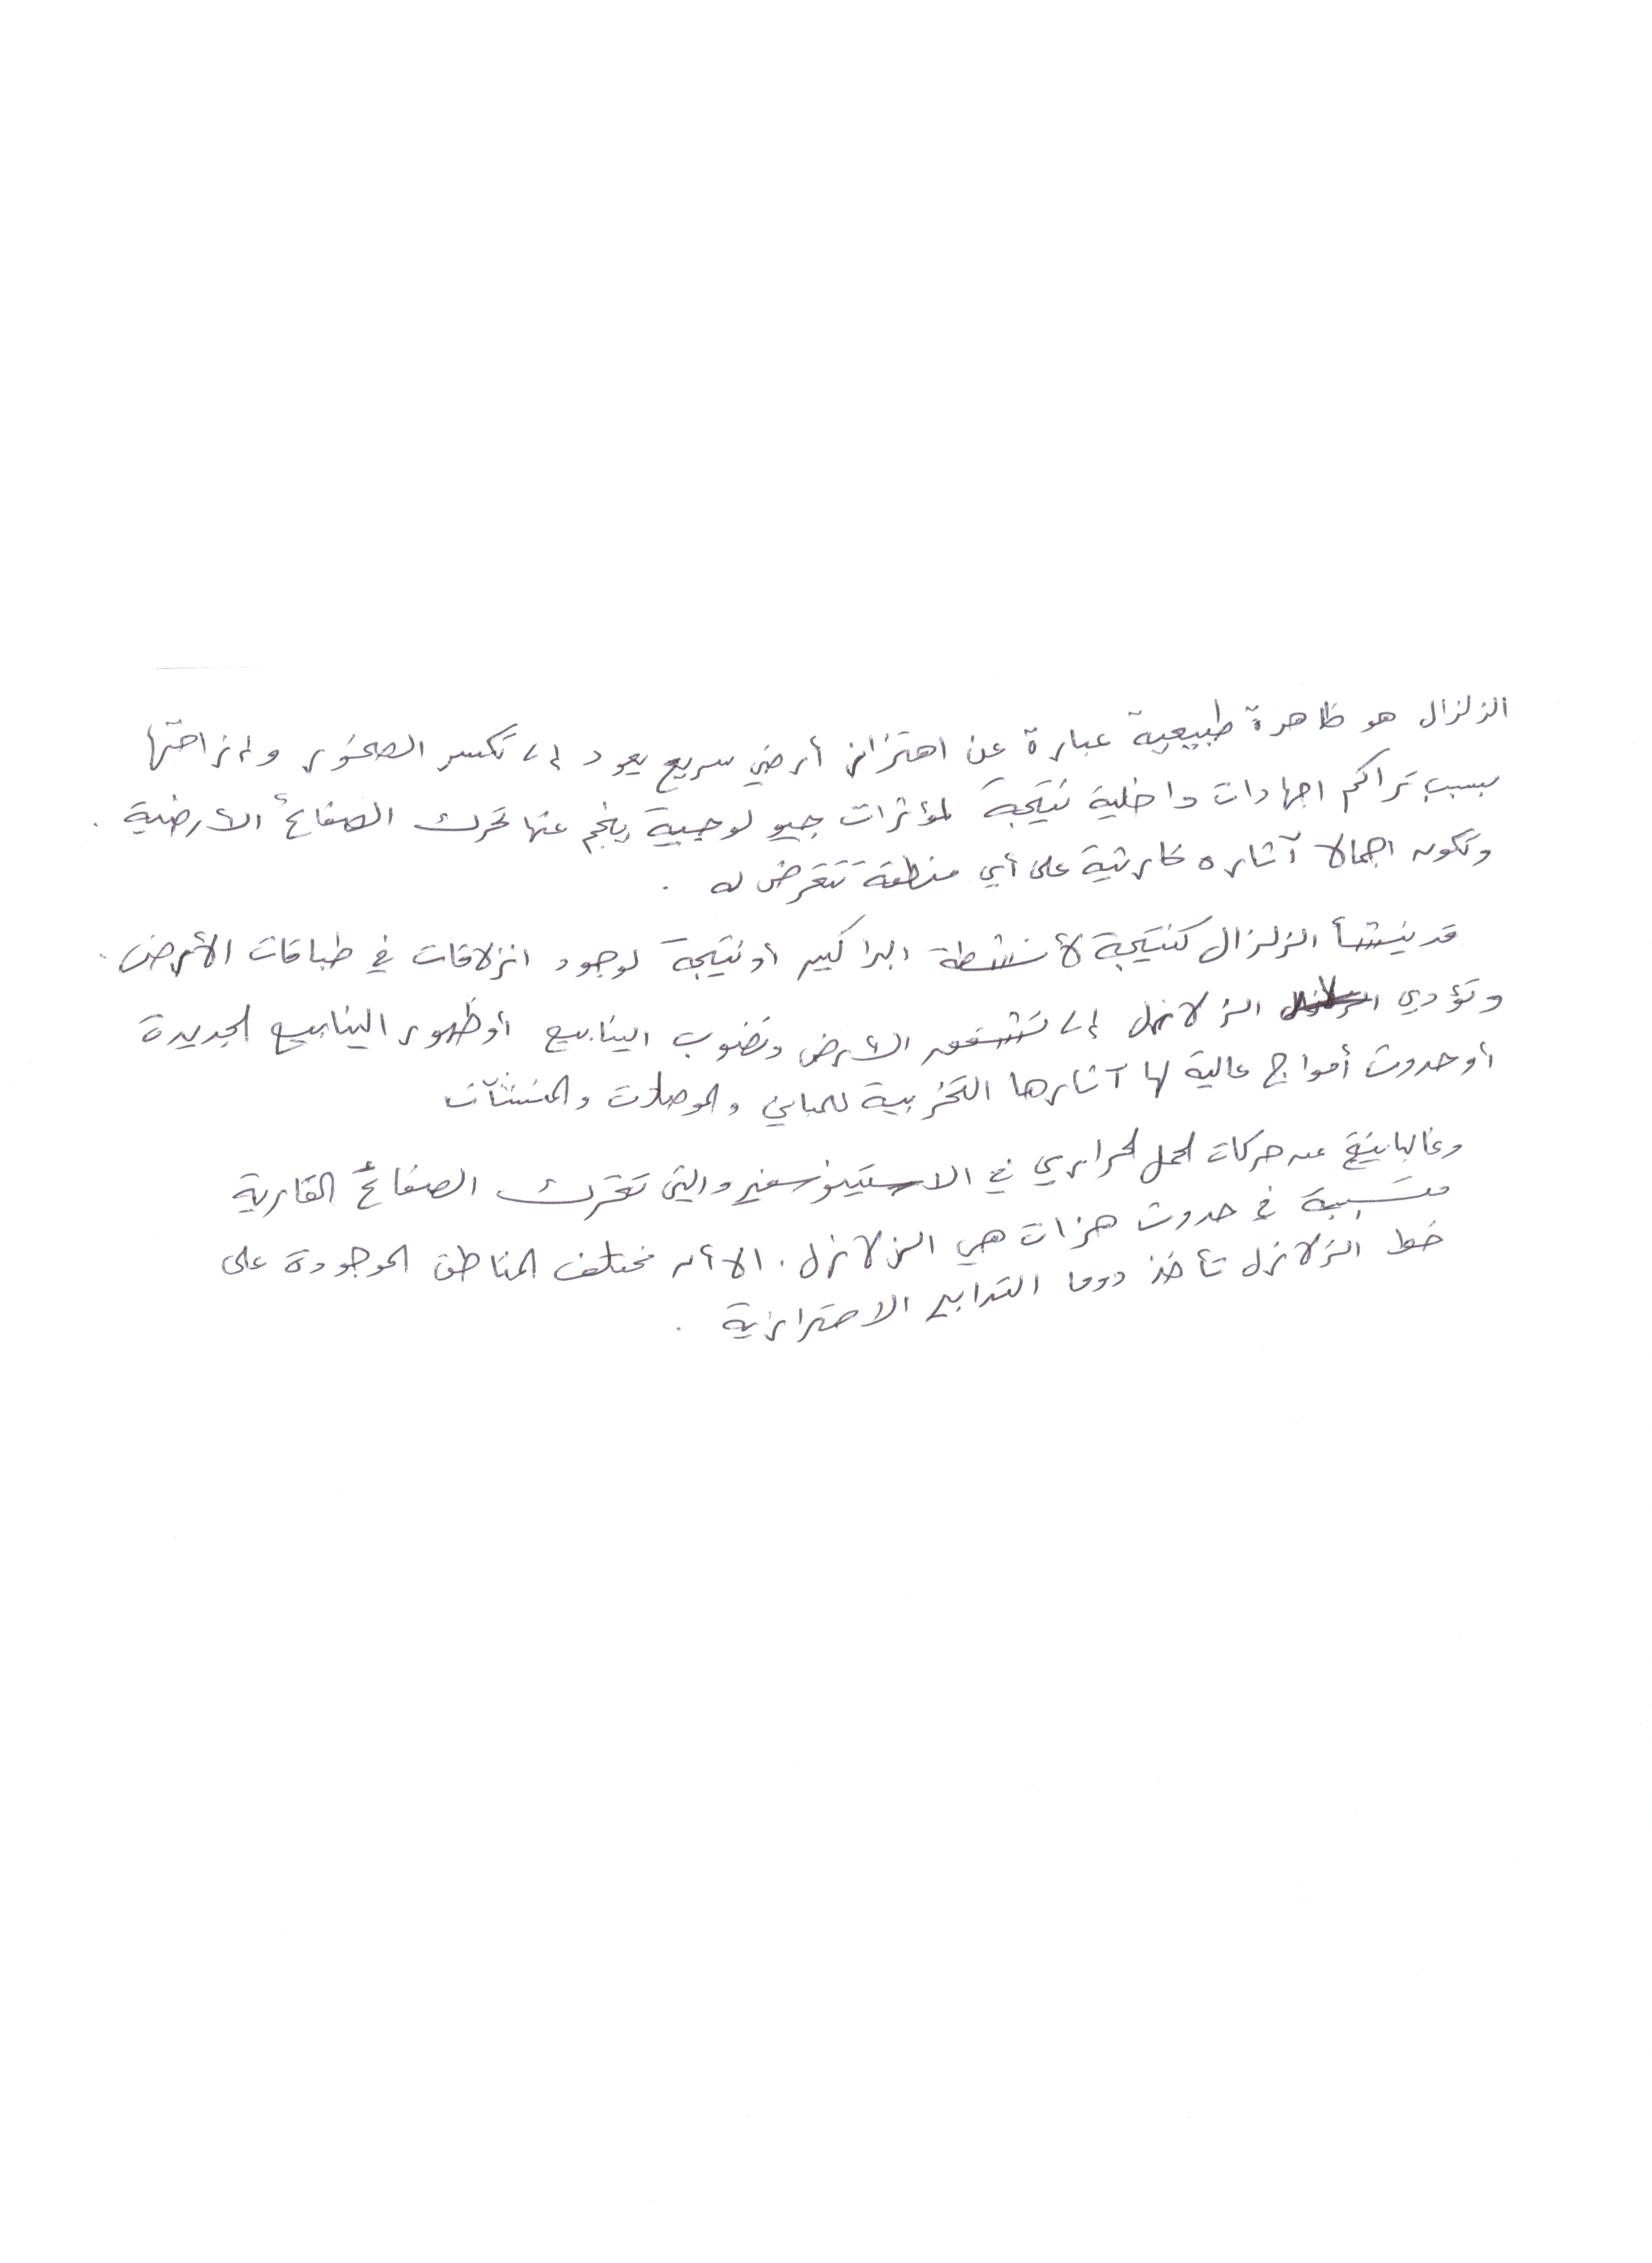 الزلزال هو ظاهرة طبيعية عبارة عن اهتزاز أرضي سريع يعود إلى تكسر الصخور وإزاحتها
بسبب تراكم اجهادات داخلية نتيجة لمؤثرات جيولوجية ينجم عنها تحرك الصفائح الأرضية .
وتكون اجمالا آثاره كارثية على أي منطقة تتعرض له .
قد ينشأ الزلزال كنتيجة لأنشطة البراكين أو نتيجة لوجود انزلاقات في طباقات الأرض .
وتؤدي الزلازل إلى تشقق الأرض ونضوب الينابيع أو ظهور الينابيع الجديدة
أو حدوث أمواج عالية لها آثارها التخريبية للمباني والموصلات والمنشآت
وغالبا ينتج عن حركات الحمل الحراري في الاستينوسفير والتي تحرك الصفائح القارية
مسببة في حدوث هزات هي الزلازل . الا أن مختلف المناطق الموجودة على
خط الزلازل تأخذ دوما التدابير الاحترازية .